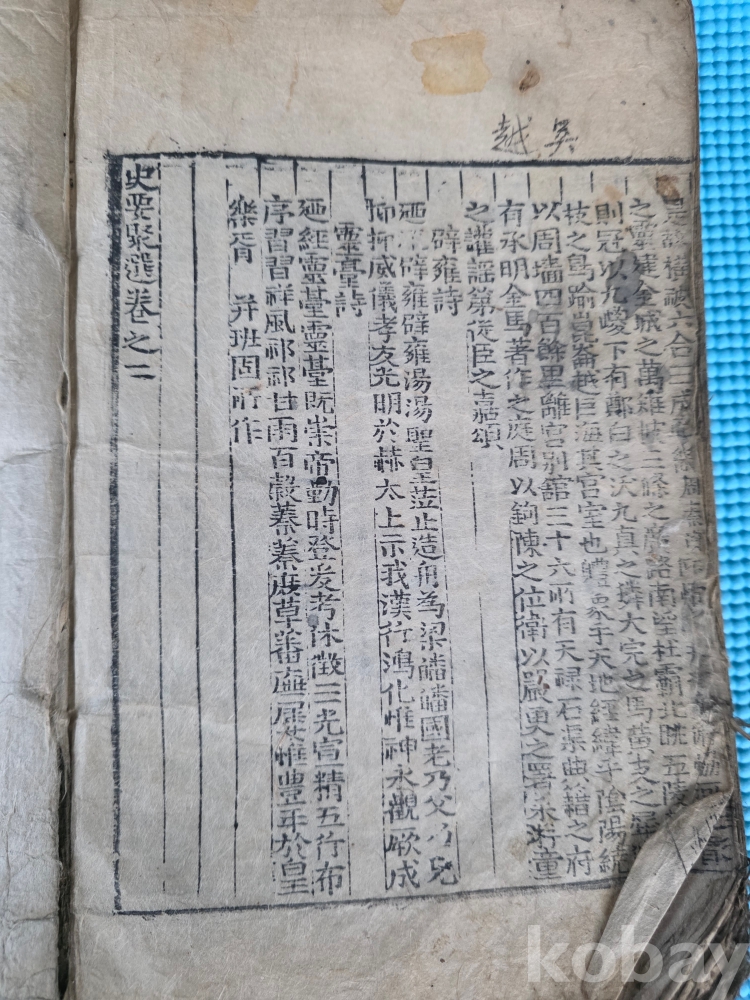 吳越
是故橫被六合三成帝畿周秦
之靈建金城之萬雉披三條之廣路南望杜霸北眺五陵
則冠以九嵕下有鄭白之沃九真之獜大宛之馬黃支之犀
枝之鳥踰崑崙越巨海其宮室也體象乎天地經緯乎陰陽統
以周墻四百餘里離宮別舘三十六所有天祿石渠典籍之府
有承明金馬著作之庭周以鉤陳之位衛以嚴更之署采游童
之讙謠第從臣之嘉頌
辟雍詩
迺辟雍辟雍湯湯聖皇莅止造舟為梁皤皤國老乃父乃兄
抑抑威儀孝友光明於赫太上示我漢行鴻化惟神永觀厥成
靈臺詩
迺經靈臺靈臺既崇帝勤時登爰考休徵三光宣精五行布
序習習祥風祁祁甘雨百穀蓁蓁庶草蕃廡屢惟豊年於皇
樂胥 并班固所作
史要聚選卷之二
kobay